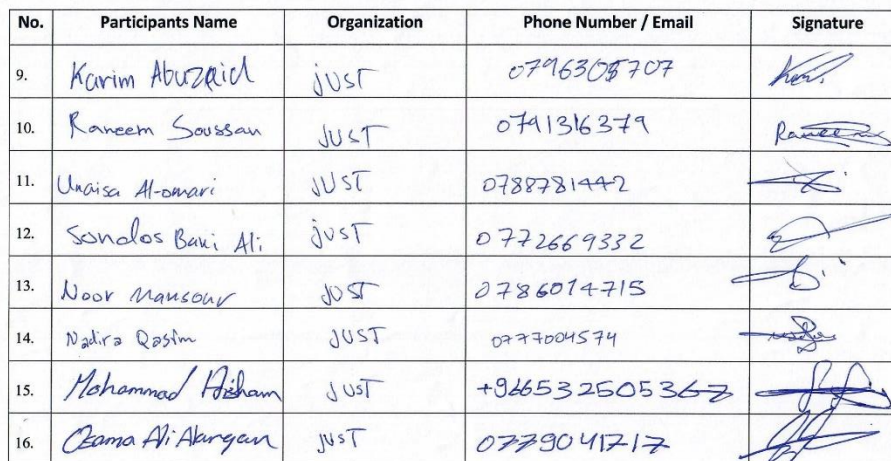 No. Participants Name Organization Phone Number / Email Signature
9. Karim Abuzaid JUST 0796305707
10. Raneem Soussan JUST 0791316379 Raneem
11. Unaisa Al-omari JUST 0788781442
12. Sondos Bani Ali JUST 0772669332
13. Noor Mansour JUST 0786014715
14. Nadira Qasim JUST 0777004574
15. Mohammad Hisham JUST +966532505367
16. Ali JUST 0779041717